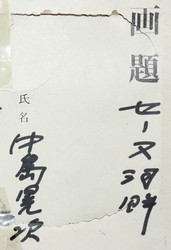 画題
セーヌ河畔
氏名
中島晃次